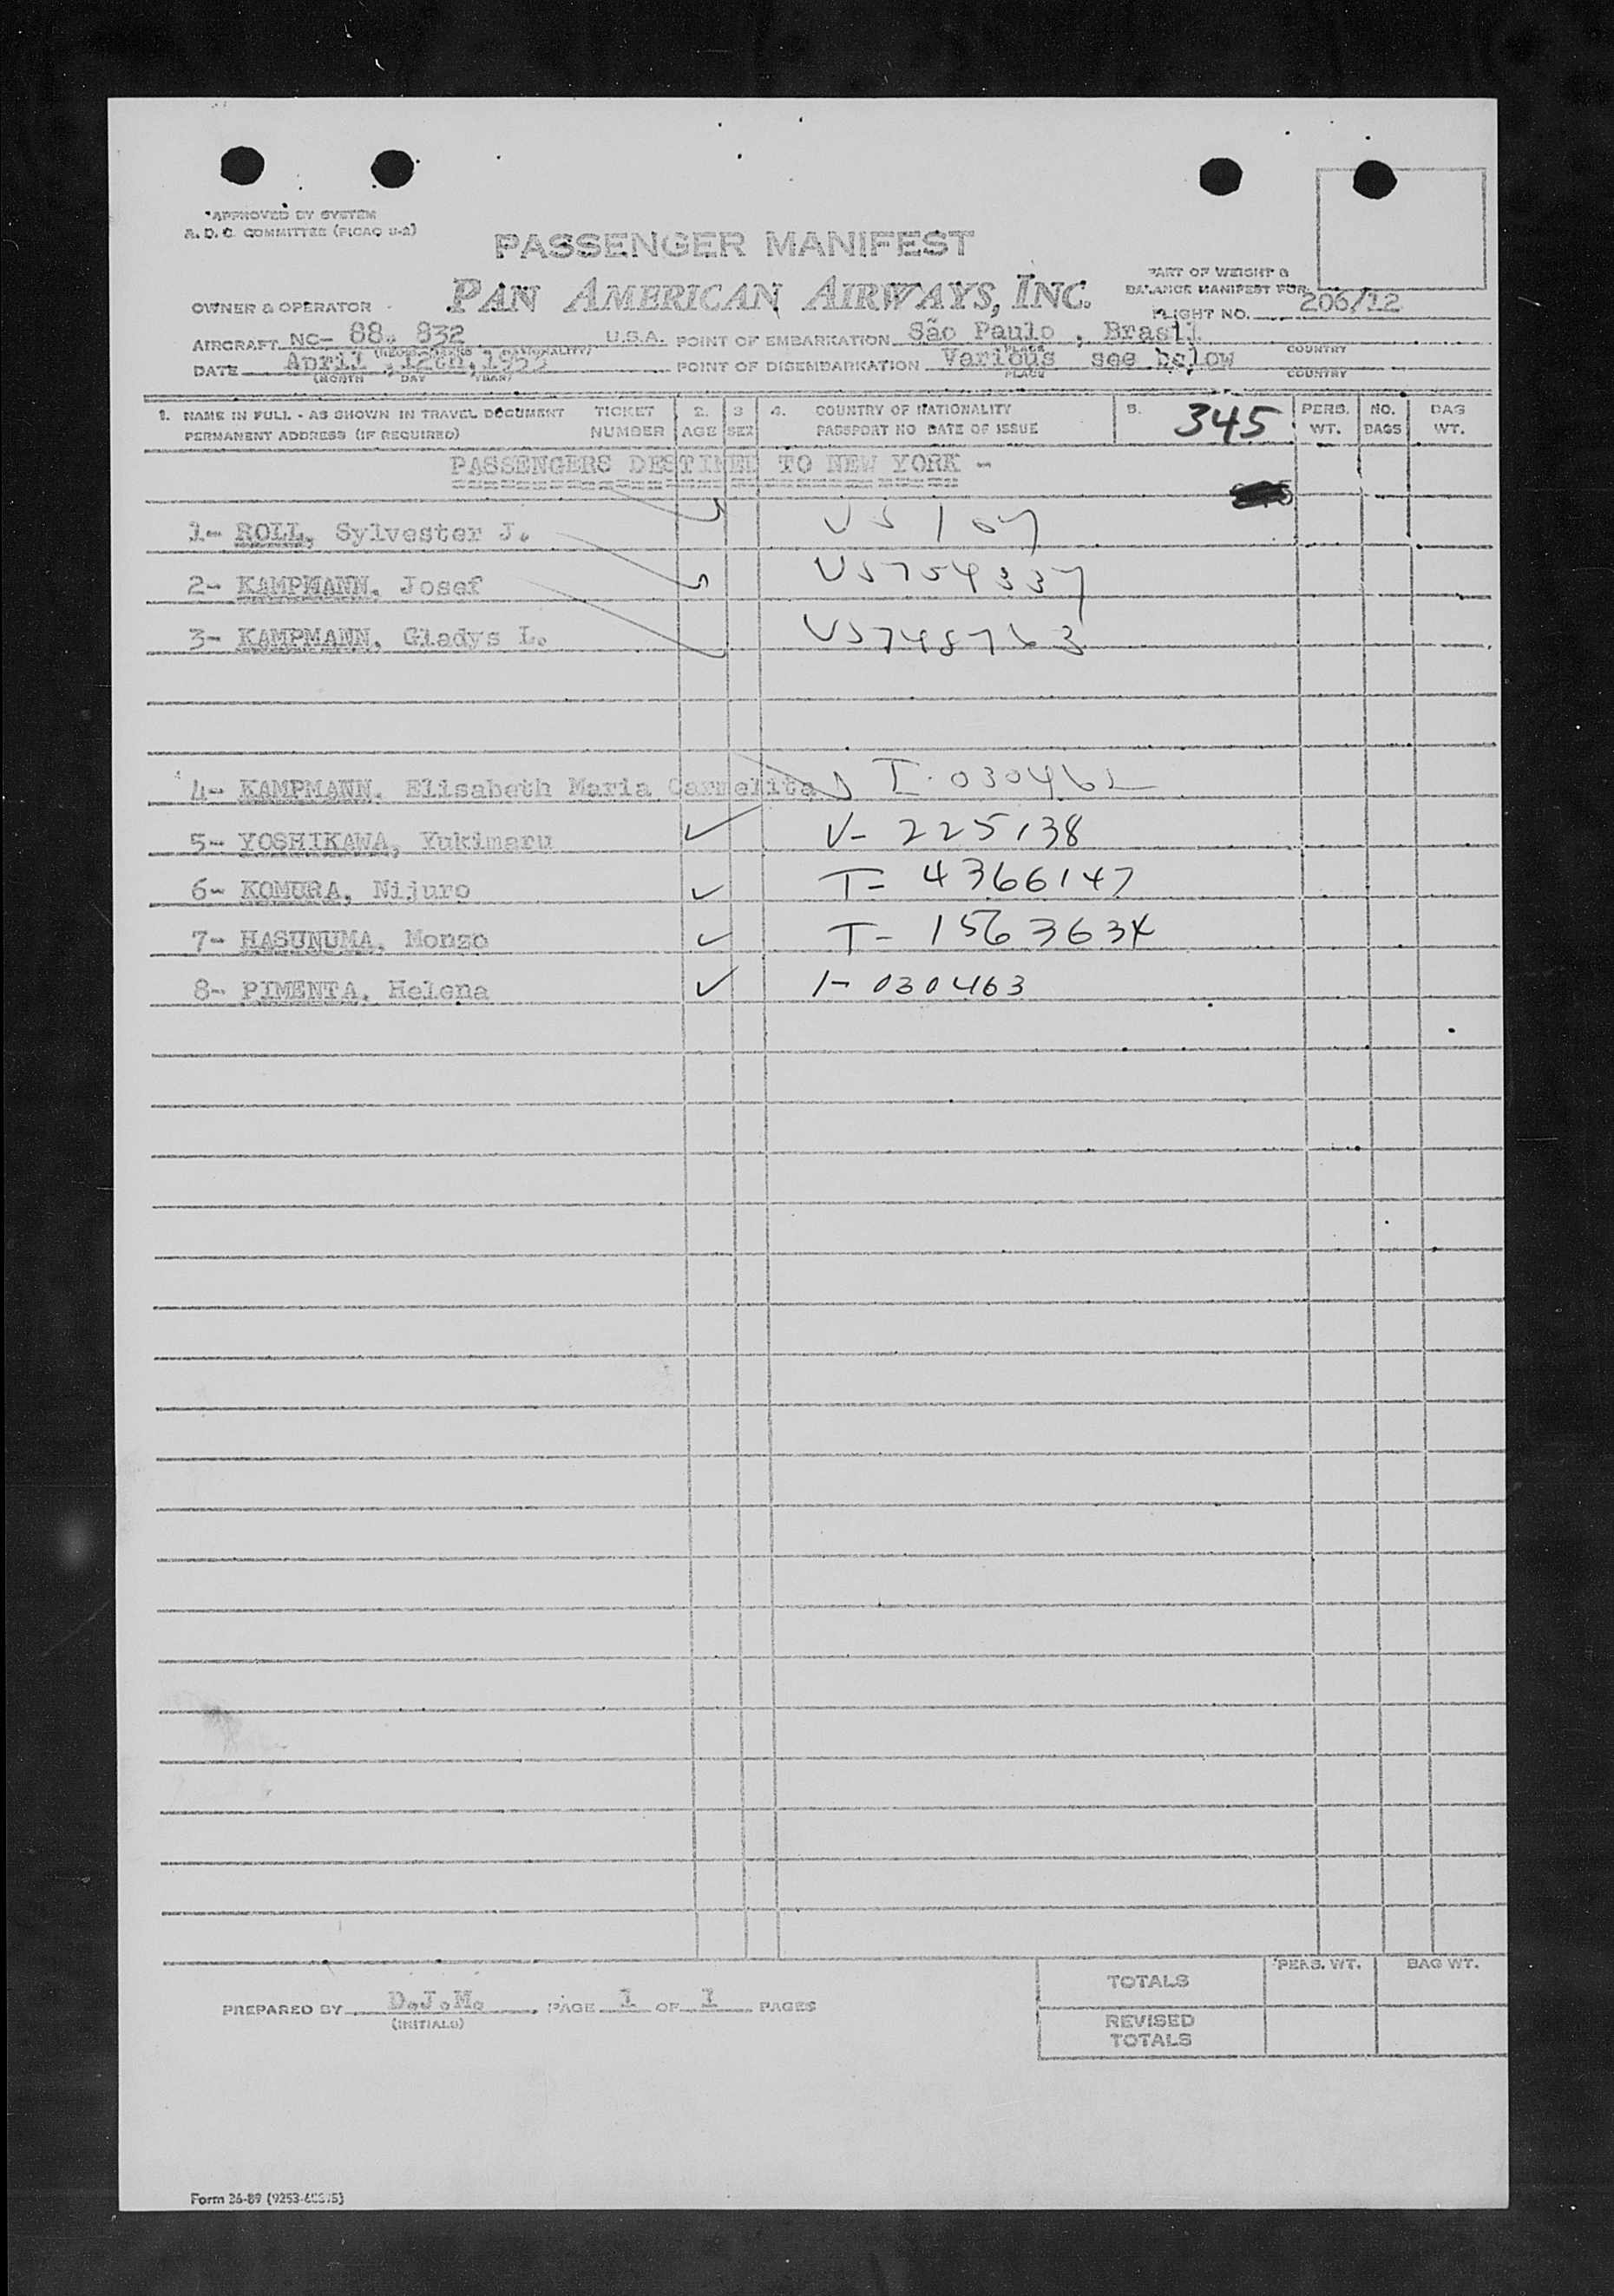 APPROVED BY SYSTEM
A. D. C. COMMITTEE (PICAO U-2)
PASSENGER MANIFEST
PAN AMERICAN AIRWAYS, INC.
PART OF WEIGHT &
BALANCE MANIFEST FOR
OWNER & OPERATOR
FLIGHT NO. 206/12
AIRCRAFT NC- 88. 832 U.S.A. POINT OF EMBARKATION São Paulo , Brasil
PLACE COUNTRY
DATE April , 12th, POINT OF DISEMBARKATION Various see below
(MONTH DAY YEAR) PLACE COUNTRY
1. NAME IN FULL - AS SHOWN IN TRAVEL DOCUMENT TICKET 2. 3 4. COUNTRY OF NATIONALITY 5. 345 PERS. NO. BAG
PERMANENT ADDRESS (IF REQUIRED) NUMBER AGE SEX PASSPORT NO DATE OF ISSUE WT. BAGS WT.
PASSENGERS DESTINED TO NEW YORK -
1- ROLL, Sylvester J. US 107
2- KAMPMANN, Josef US754337
3- KAMPMANN, Gladys L. US748763
4- KAMPMANN, Elisabeth Maria Carmelita I-030462
5- YOSHIKAWA, Yukimaru V- 225138
6- KOMURA, Nijuro T- 4366147
7- HASUNUMA, Monzo T- 1563634
8- PIMENTA, Helena I- 030463
TOTALS PERS. WT. BAG WT.
PREPARED BY D.J.M. PAGE 1 OF 1 PAGES
(INITIALS)
REVISED
TOTALS
Form 26-89